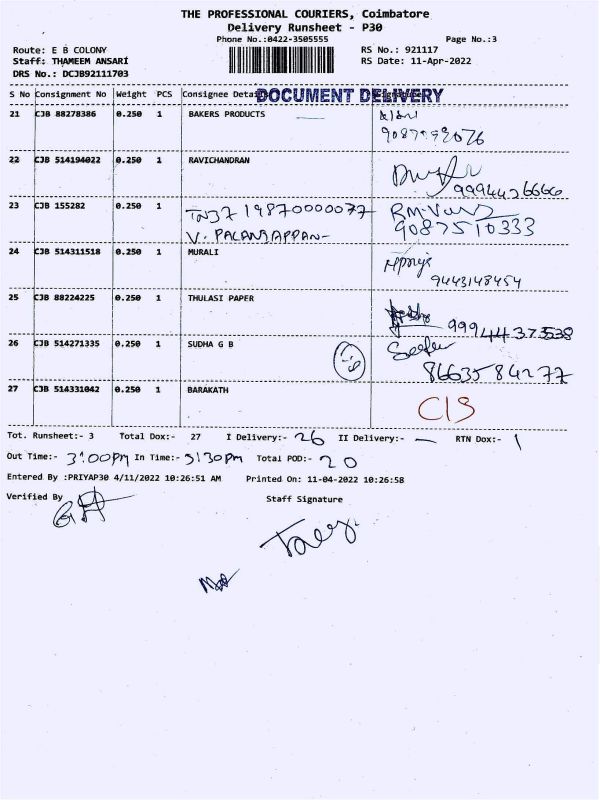 THE PROFESSIONAL COURIERS, Coimbatore
Delivery Runsheet - P30
Phone No.:0422-3505555
Page No.:3
Route: E B COLONY
RS No.: 921117
Staff: THAMEEM ANSARI
RS Date: 11-Apr-2022
DRS No.: DCJB92111703
S No Consignment No Weight PCS Consignee Details
DOCUMENT DELIVERY
21 CJB 88278386 0.250 1 BAKERS PRODUCTS
22 CJB 514194022 0.250 1 RAVICHANDRAN
9994426666
23 CJB 155282 0.250 1 TN37 19870000077
V. PALANIAPPAN
9087510333
24 CJB 514311518 0.250 1 MURALI
9443148454
25 CJB 88224225 0.250 1 THULASI PAPER
9994437538
26 CJB 514271335 0.250 1 SUDHA G B
8663584277
27 CJB 514331042 0.250 1 BARAKATH
C/S
Tot. Runsheet:- 3 Total Dox:- 27 I Delivery:- 26 II Delivery:- — RTN Dox:- 1
Out Time:- 3:00pm In Time:- 5:30pm Total POD:- 20
Entered By :PRIYAP30 4/11/2022 10:26:51 AM Printed On: 11-04-2022 10:26:58
Verified By
Staff Signature